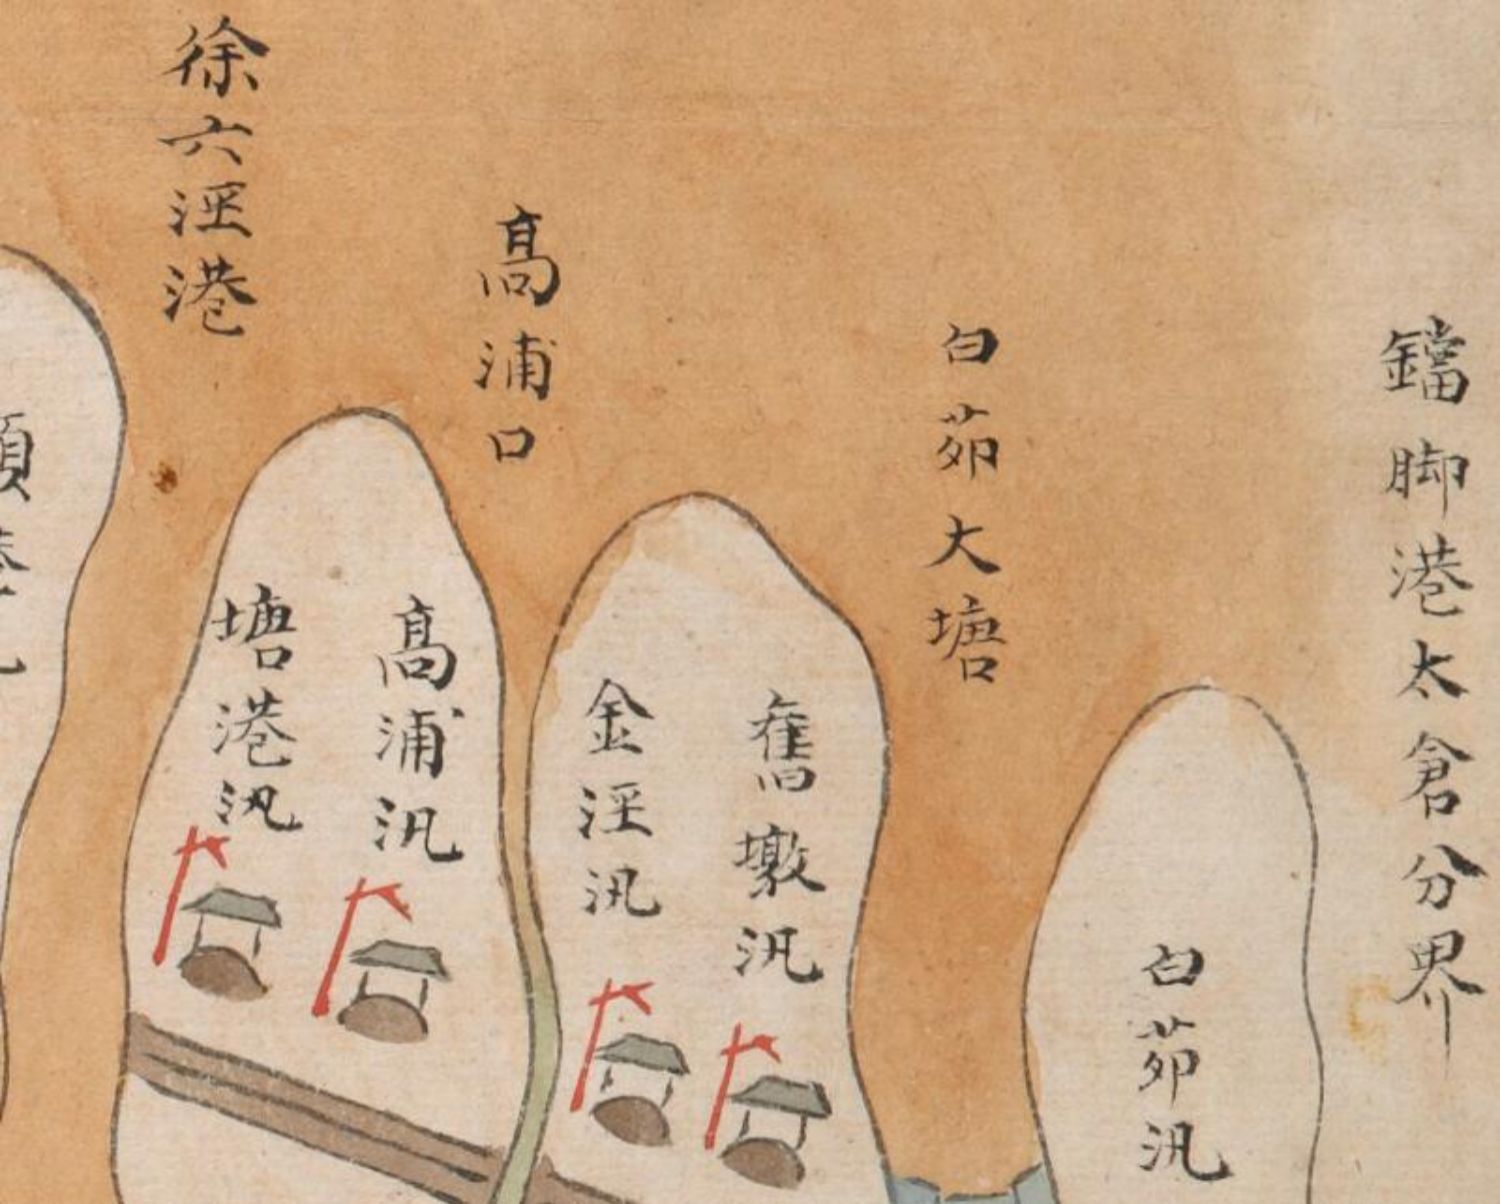 鐺脚港太倉分界
白茆汛
白茆大塘
舊墩汛
金涇汛
髙浦口
髙浦汛
塘港汛
徐六涇港